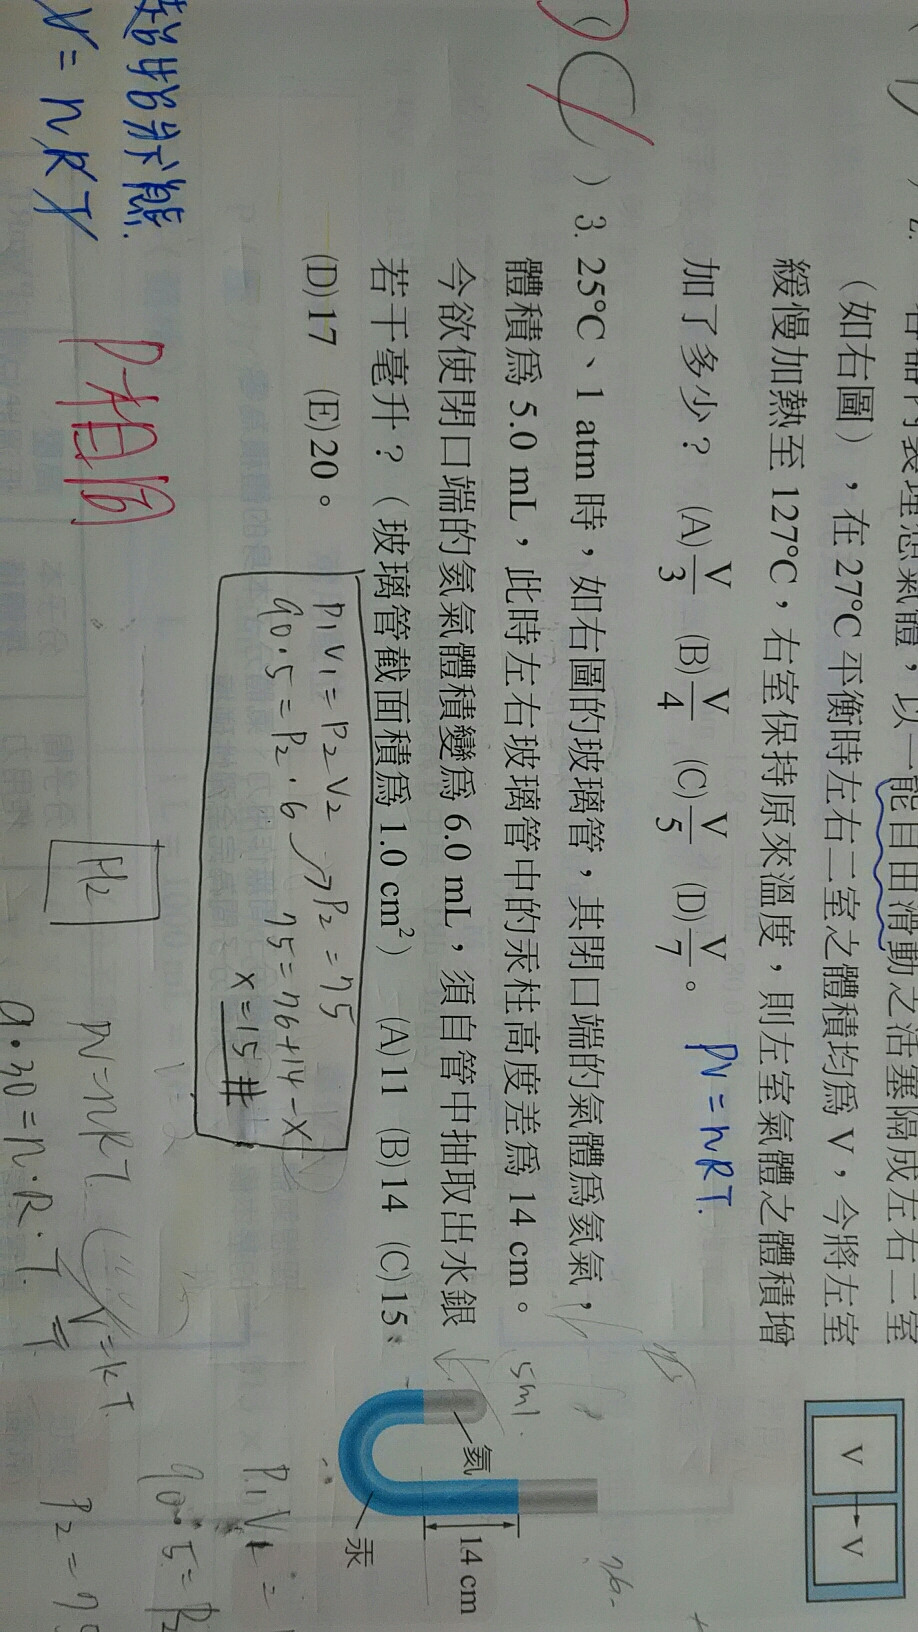 容器內裝理想氣體，以一能自由滑動之活塞隔成左右二室
（如右圖），在 27°C 平衡時左右二室之體積均為 V，今將左室
緩慢加熱至 127°C，右室保持原來溫度，則左室氣體之體積增
加了多少？ (A) V/3 (B) V/4 (C) V/5 (D) V/7 。
PV = nRT.
V V
) 3. 25°C、1 atm 時，如右圖的玻璃管，其閉口端的氣體為氦氣，
體積為 5.0 mL，此時左右玻璃管中的汞柱高度差為 14 cm。
今欲使閉口端的氦氣體積變為 6.0 mL，須自管中抽取出水銀
若干毫升？（玻璃管截面積為 1.0 cm²） (A)11 (B)14 (C)15
(D)17 (E)20。
5ml.
氦
14 cm
汞
76-
P₁V₁ = P₂V₂
90·5 = P₂·6 → P₂ = 75
75 = 76+14-X
X = 15 #
P相同
V = nRT
H₂
PV = nRT
V = kT.
P₁V₁ =
90·5 = P₂
P₂ = 75